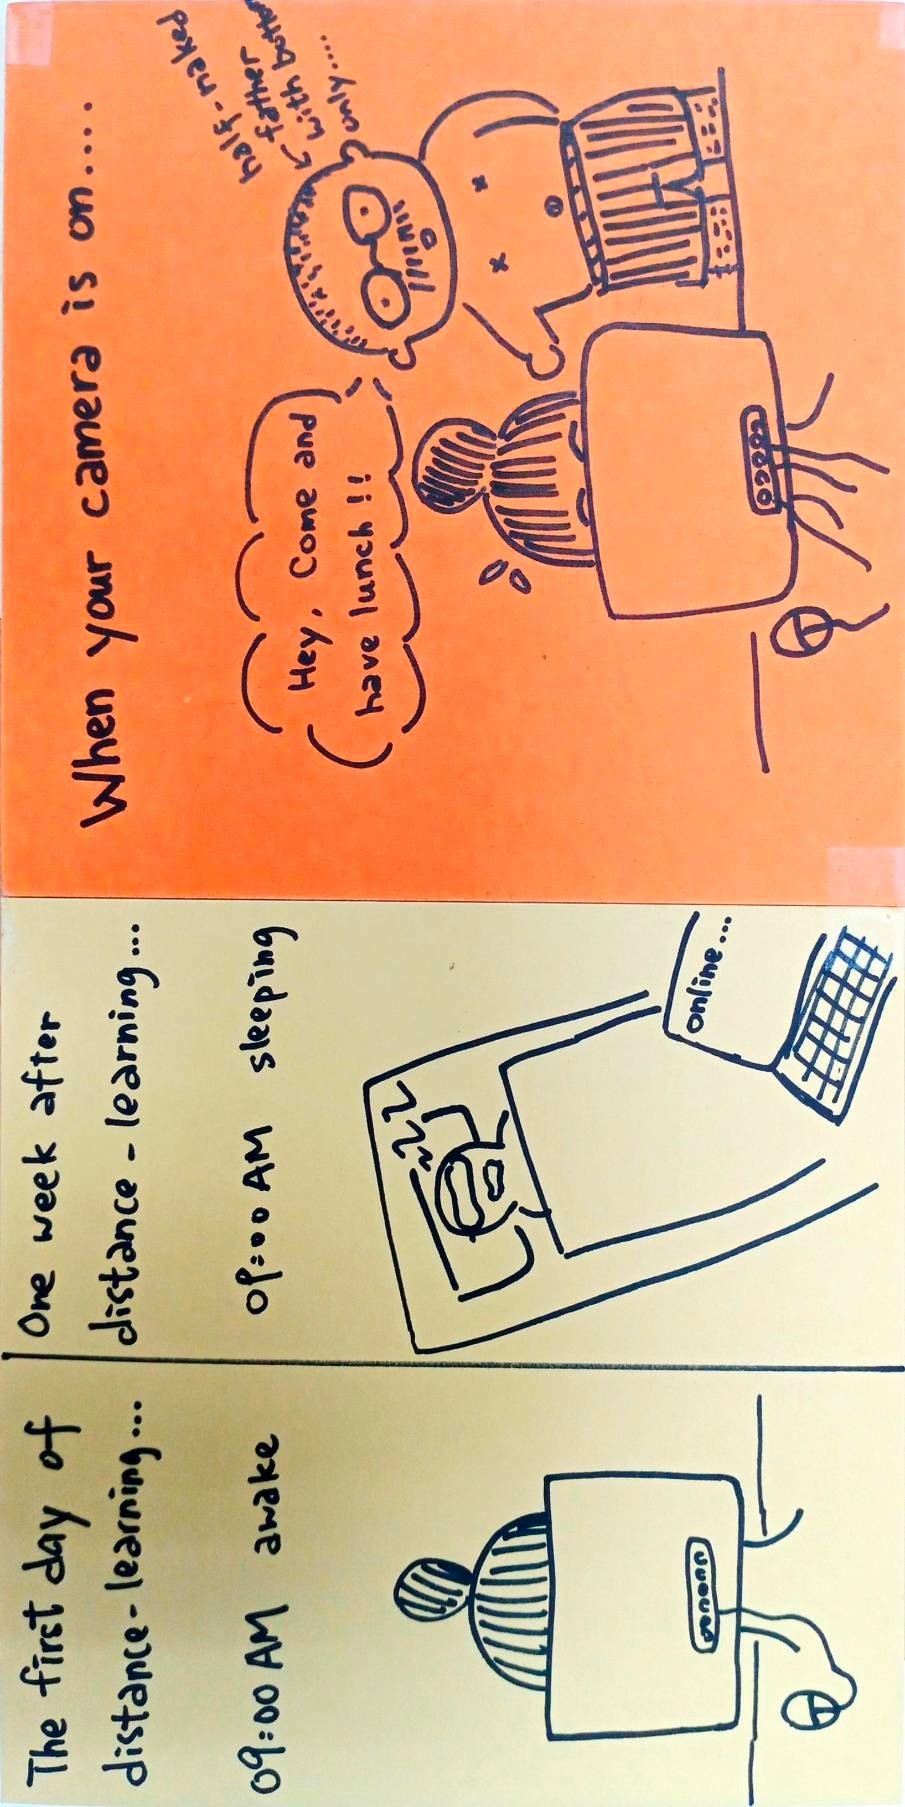 The first day of
distance-learning...
09:00 AM awake
One week after
distance-learning...
09:00 AM sleeping
zzz
online...
When your camera is on....
half-naked
father
with button
only.....
Hey, Come and
have lunch!!